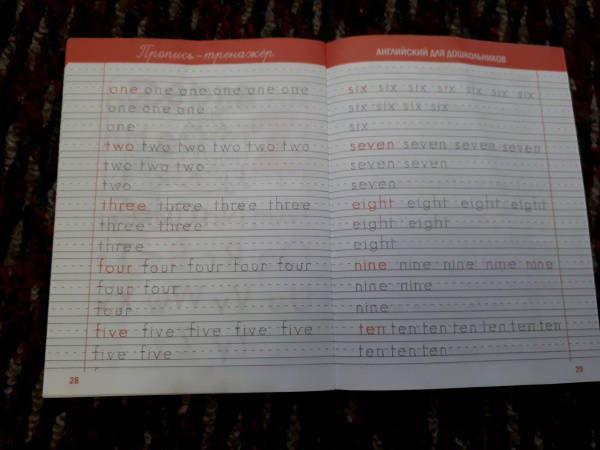 Пропись-тренажёр
one one one one one one one
one one one
one
two two two two two two
two two two
two
three three three three
three three
three
four four four four four
four four
four
five five five five five
five five
28
АНГЛИЙСКИЙ ДЛЯ ДОШКОЛЬНИКОВ
six six six six six six six
six six six six
six
seven seven seven seven
seven seven
seven
eight eight eight eight
eight eight
eight
nine nine nine nine nine
nine nine
nine
ten ten ten ten ten ten ten
ten ten ten
29